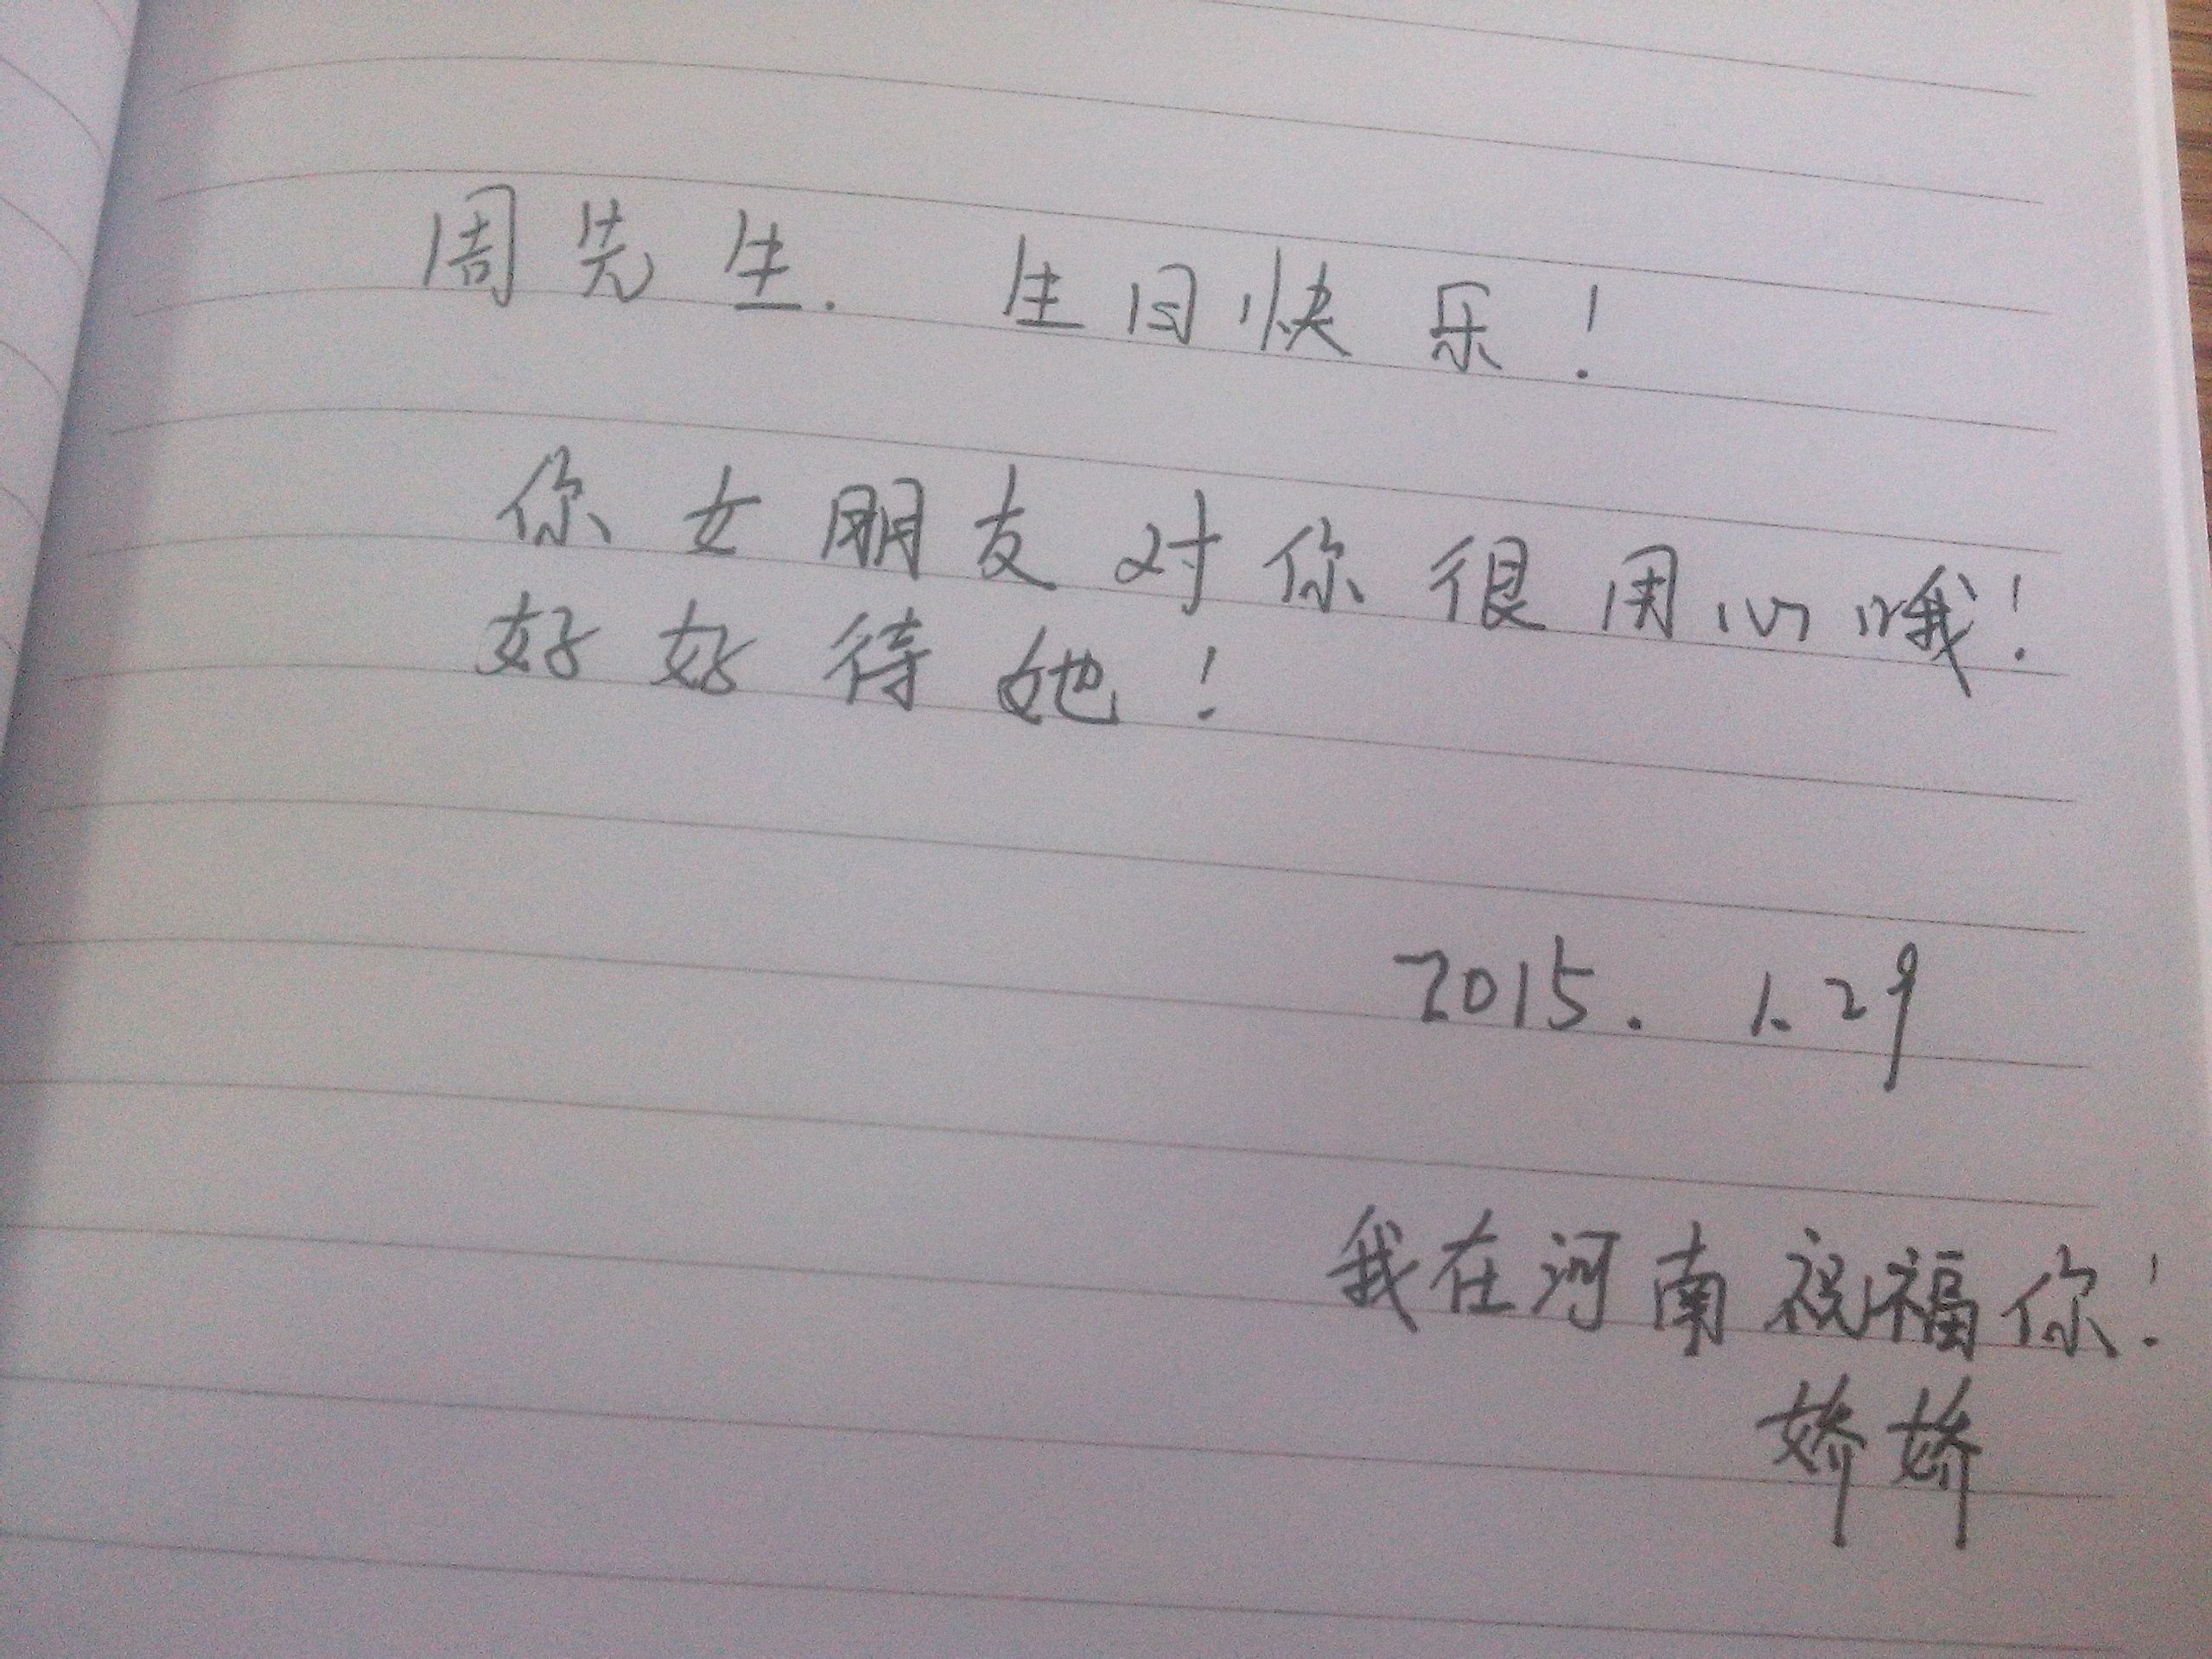 周先生. 生日快乐！
你女朋友对你很用心哦！
好好待她！
2015. 1.29
我在河南祝福你！
娇娇